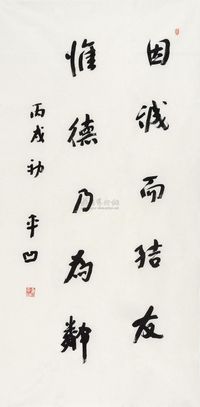 因诚而结友
惟德乃为邻
丙戌初 平凹